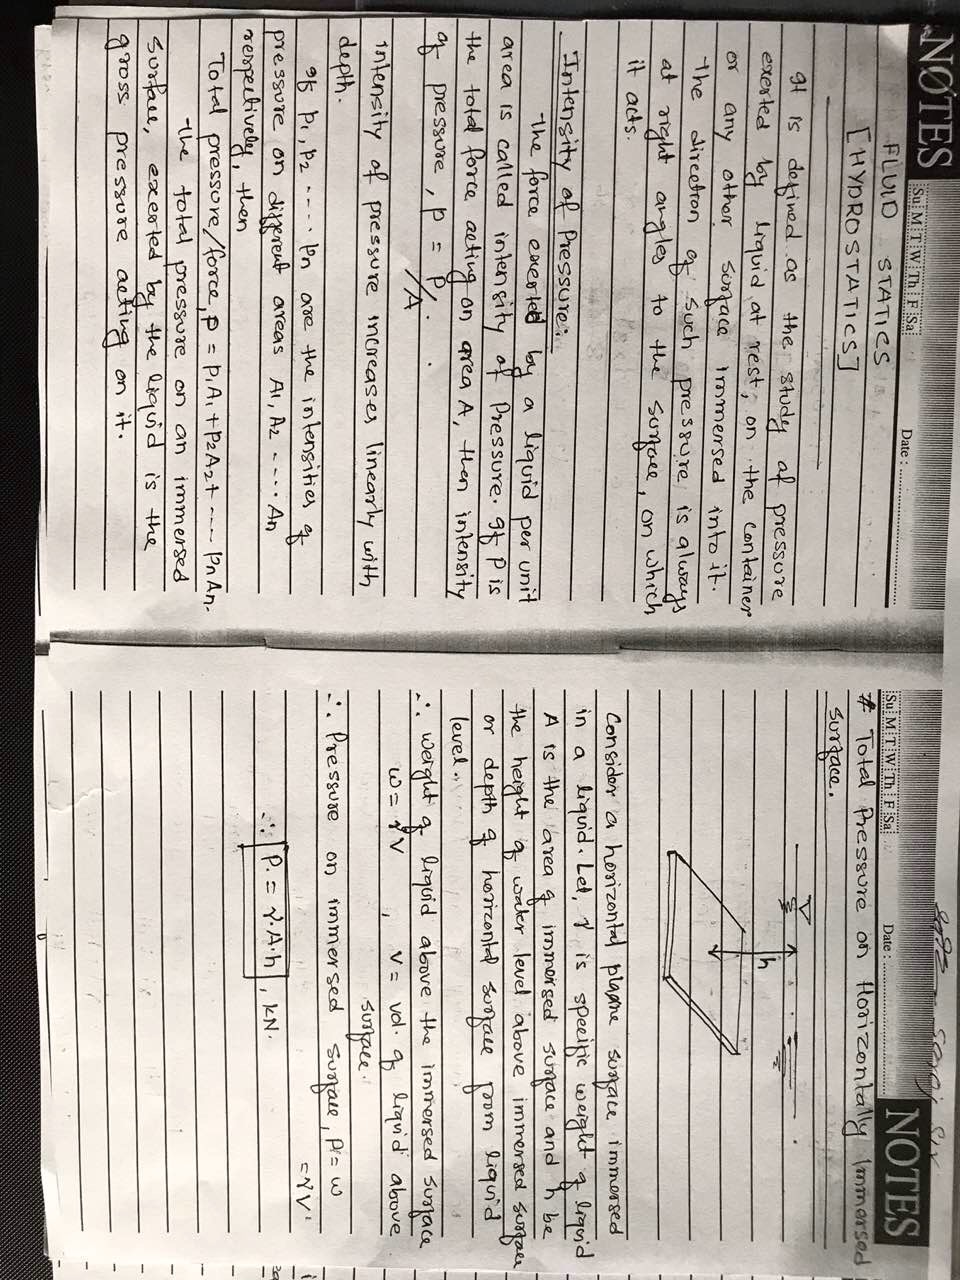 NOTES
Su M T W Th F Sa
Date :
FLUID STATICS
[HYDROSTATICS]
It is defined as the study of pressure
exerted by liquid at rest, on the container
or any other surface immersed into it.
The direction of such pressure is always
at right angles to the surface, on which
it acts.
Intensity of Pressure:
The force exerted by a liquid per unit
area is called intensity of Pressure. If P is
the total force acting on area A, then intensity
of pressure, p = P/A.
intensity of pressure increases linearly with
depth.
If p1, p2 ---- pn are the intensities of
pressure on different areas A1, A2 ---- An
respectively, then
Total pressure/force, p = p1A1 + p2A2 + ---- pnAn.
The total pressure on an immersed
surface, exerted by the liquid is the
gross pressure acting on it.
NOTES
Su M T W Th F Sa
Date :
# Total Pressure on Horizontally Immersed
surface.
h
Consider a horizontal plane surface immersed
in a liquid. Let, γ is specific weight of liquid
A is the area of immersed surface and h be
the height of water level above immersed surface
or depth of horizontal surface from liquid
level.
∴ weight of liquid above the immersed surface
w = γV , V = vol. of liquid above
surface.
∴ Pressure on immersed surface, P = w
= γV.
∴ P = γ.A.h , KN.